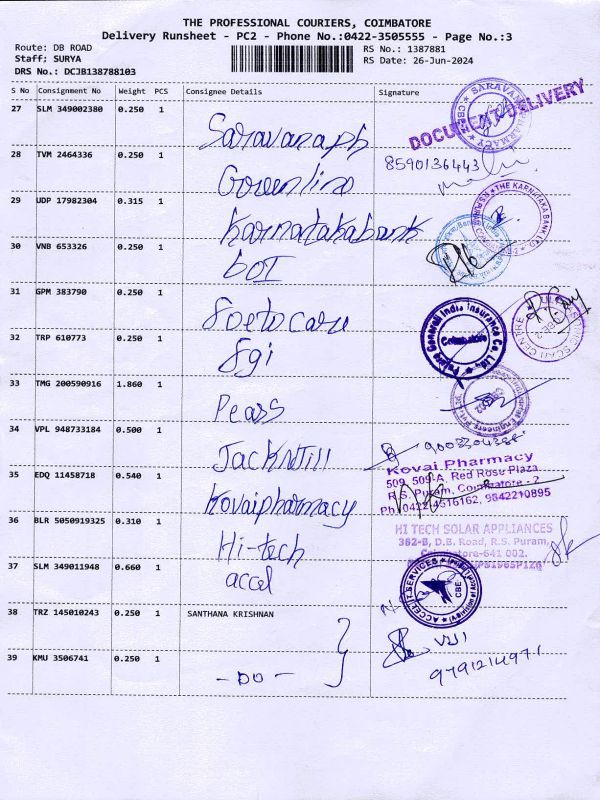 THE PROFESSIONAL COURIERS, COIMBATORE
Delivery Runsheet - PC2 - Phone No.:0422-3505555 - Page No.:3
Route: DB ROAD RS No.: 1387881
Staff; SURYA RS Date: 26-Jun-2024
DRS No.: DCJB138788103
S No Consignment No Weight PCS Consignee Details Signature
27 SLM 349002380 0.250 1 Saravanaph
SARAVANA PHARMACY CBE
DOCUMENT DELIVERY
28 TVM 2464336 0.250 1 Greenline 8590136443
29 UDP 17982304 0.315 1 Karnatakabank
THE KARNATAKA BANK LTD.
30 VNB 653326 0.250 1 BOI
31 GPM 383790 0.250 1
SCAN CENTRE
32 TRP 610773 0.250 1 Fgi
Future Generali India Insurance Co. Ltd.,
Coimbatore
33 TMG 200590916 1.860 1 Pears
34 VPL 948733184 0.500 1 JackNJill
35 EDQ 11458718 0.540 1 Kovaipharmacy
Kovai Pharmacy
509, 509-A, Red Rose Plaza
R.S. Puram, Coimbatore - 2
Ph:0422-4516162, 9842210895
36 BLR 5050919325 0.310 1 Hi-tech
HI TECH SOLAR APPLIANCES
382-B, D.B. Road, R.S. Puram,
Coimbatore-641 002.
37 SLM 349011948 0.660 1 accel
ACCEL IT SERVICES
CBE
38 TRZ 145010243 0.250 1 SANTHANA KRISHNAN
VIJI
39 KMU 3506741 0.250 1 - DO - 9791214971